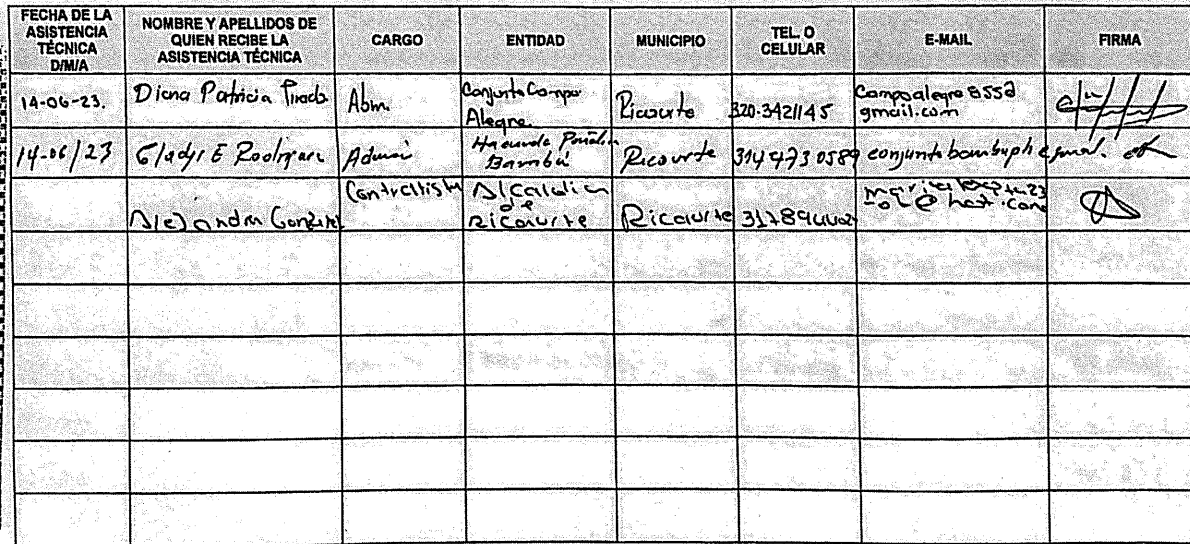 FECHA DE LA ASISTENCIA TÉCNICA D/M/A
NOMBRE Y APELLIDOS DE QUIEN RECIBE LA ASISTENCIA TÉCNICA
CARGO
ENTIDAD
MUNICIPIO
TEL. O CELULAR
E-MAIL
FIRMA
14-06-23. Diana Patricia Adm. Conjunto Campo Alegre Ricaurte 320-3421145 Campoalegre8552 gmail.com
14-06/23 Gladys E Admi Hacienda Bambú Ricaurte 3144730589
Alejandra González Contratista Alcaldia de Ricaurte Ricaurte